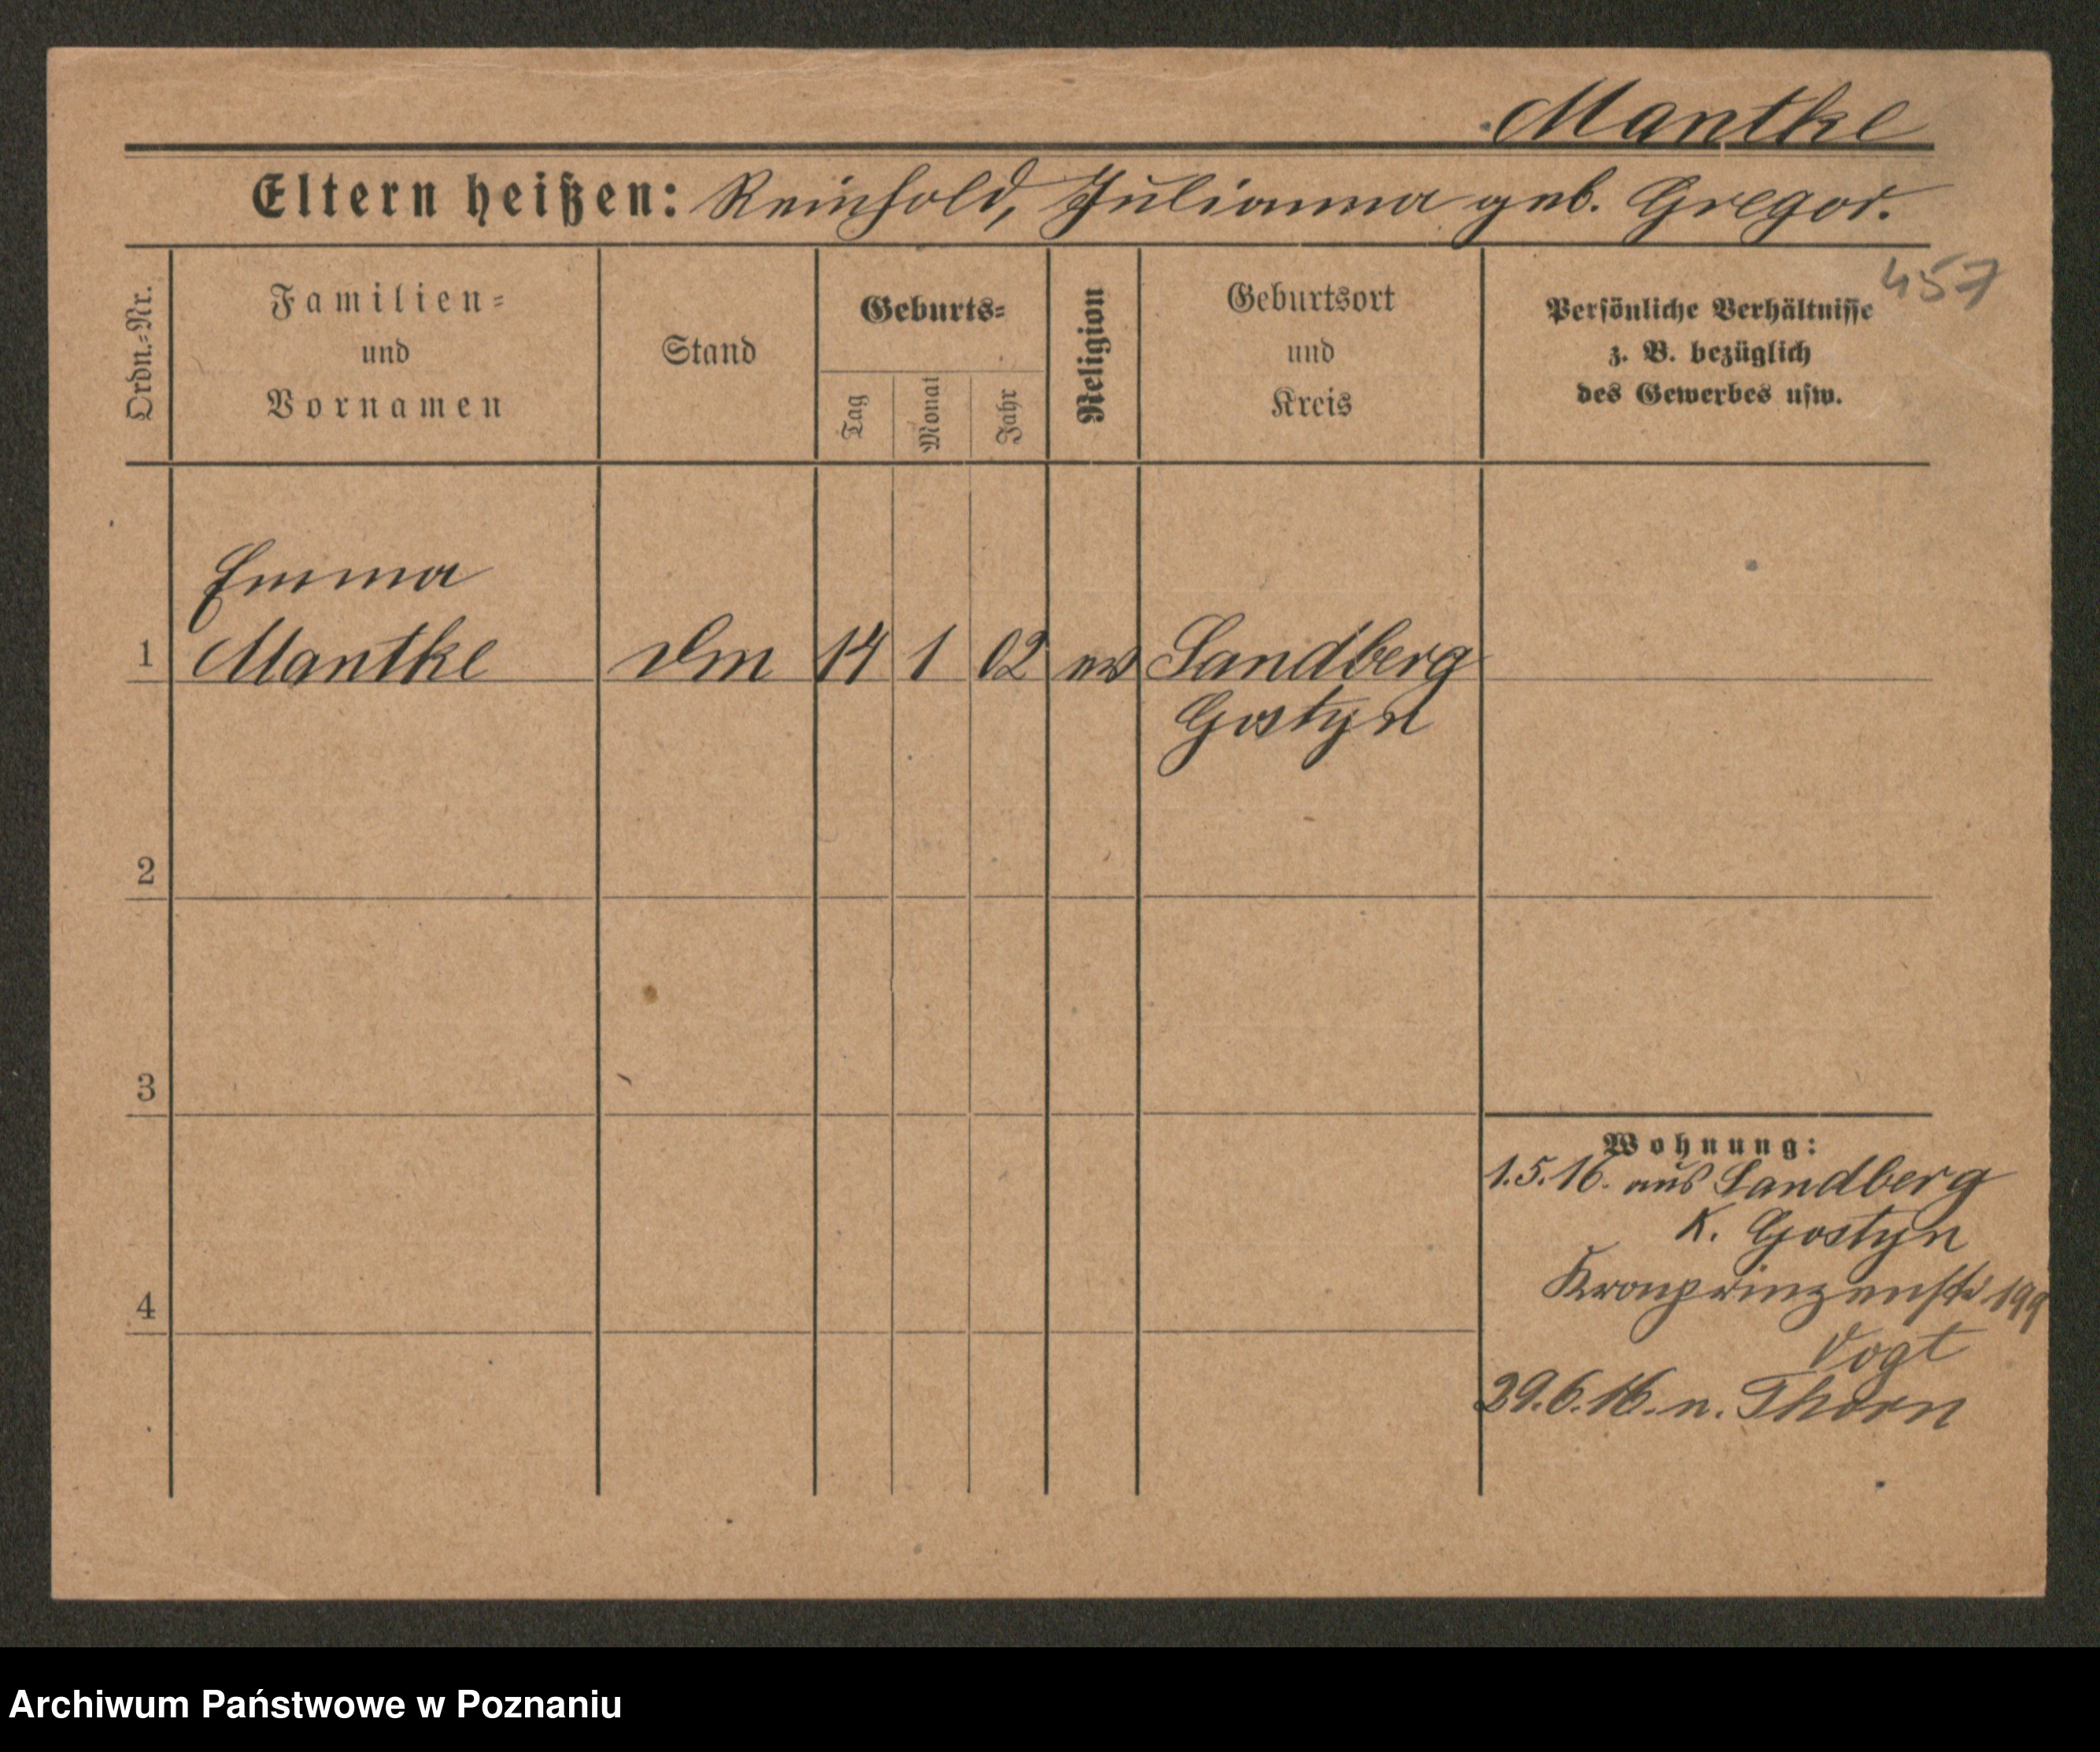 Mantke
Eltern heißen: Reinhold, Julianna geb. Gregor.
457
Ordn.-Nr.
Familien-
und
Vornamen
Stand
Geburts-
Tag
Monat
Jahr
Religion
Geburtsort
und
Kreis
Persönliche Verhältnisse
z. B. bezüglich
des Gewerbes usw.
Emma
1 Mantke 14 1 02 ev Sandberg
Gostyn
2
3
4
Wohnung:
1.5.16. aus Sandberg
K. Gostyn
Kronprinzenstr 199
Vogt
29.6.16. n. Thorn
Archiwum Państwowe w Poznaniu